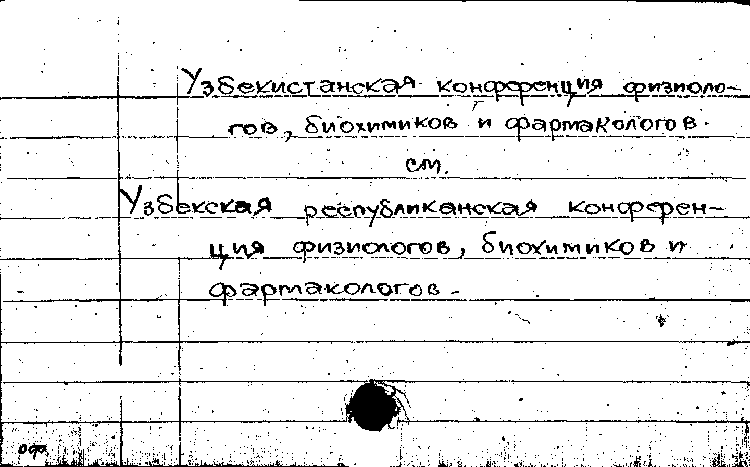 Узбекистанская конференция физиоло-
гов, биохимиков и фармакологов.
см.
Узбекская республиканская конферен-
ция физиологов, биохимиков и
фармакологов.